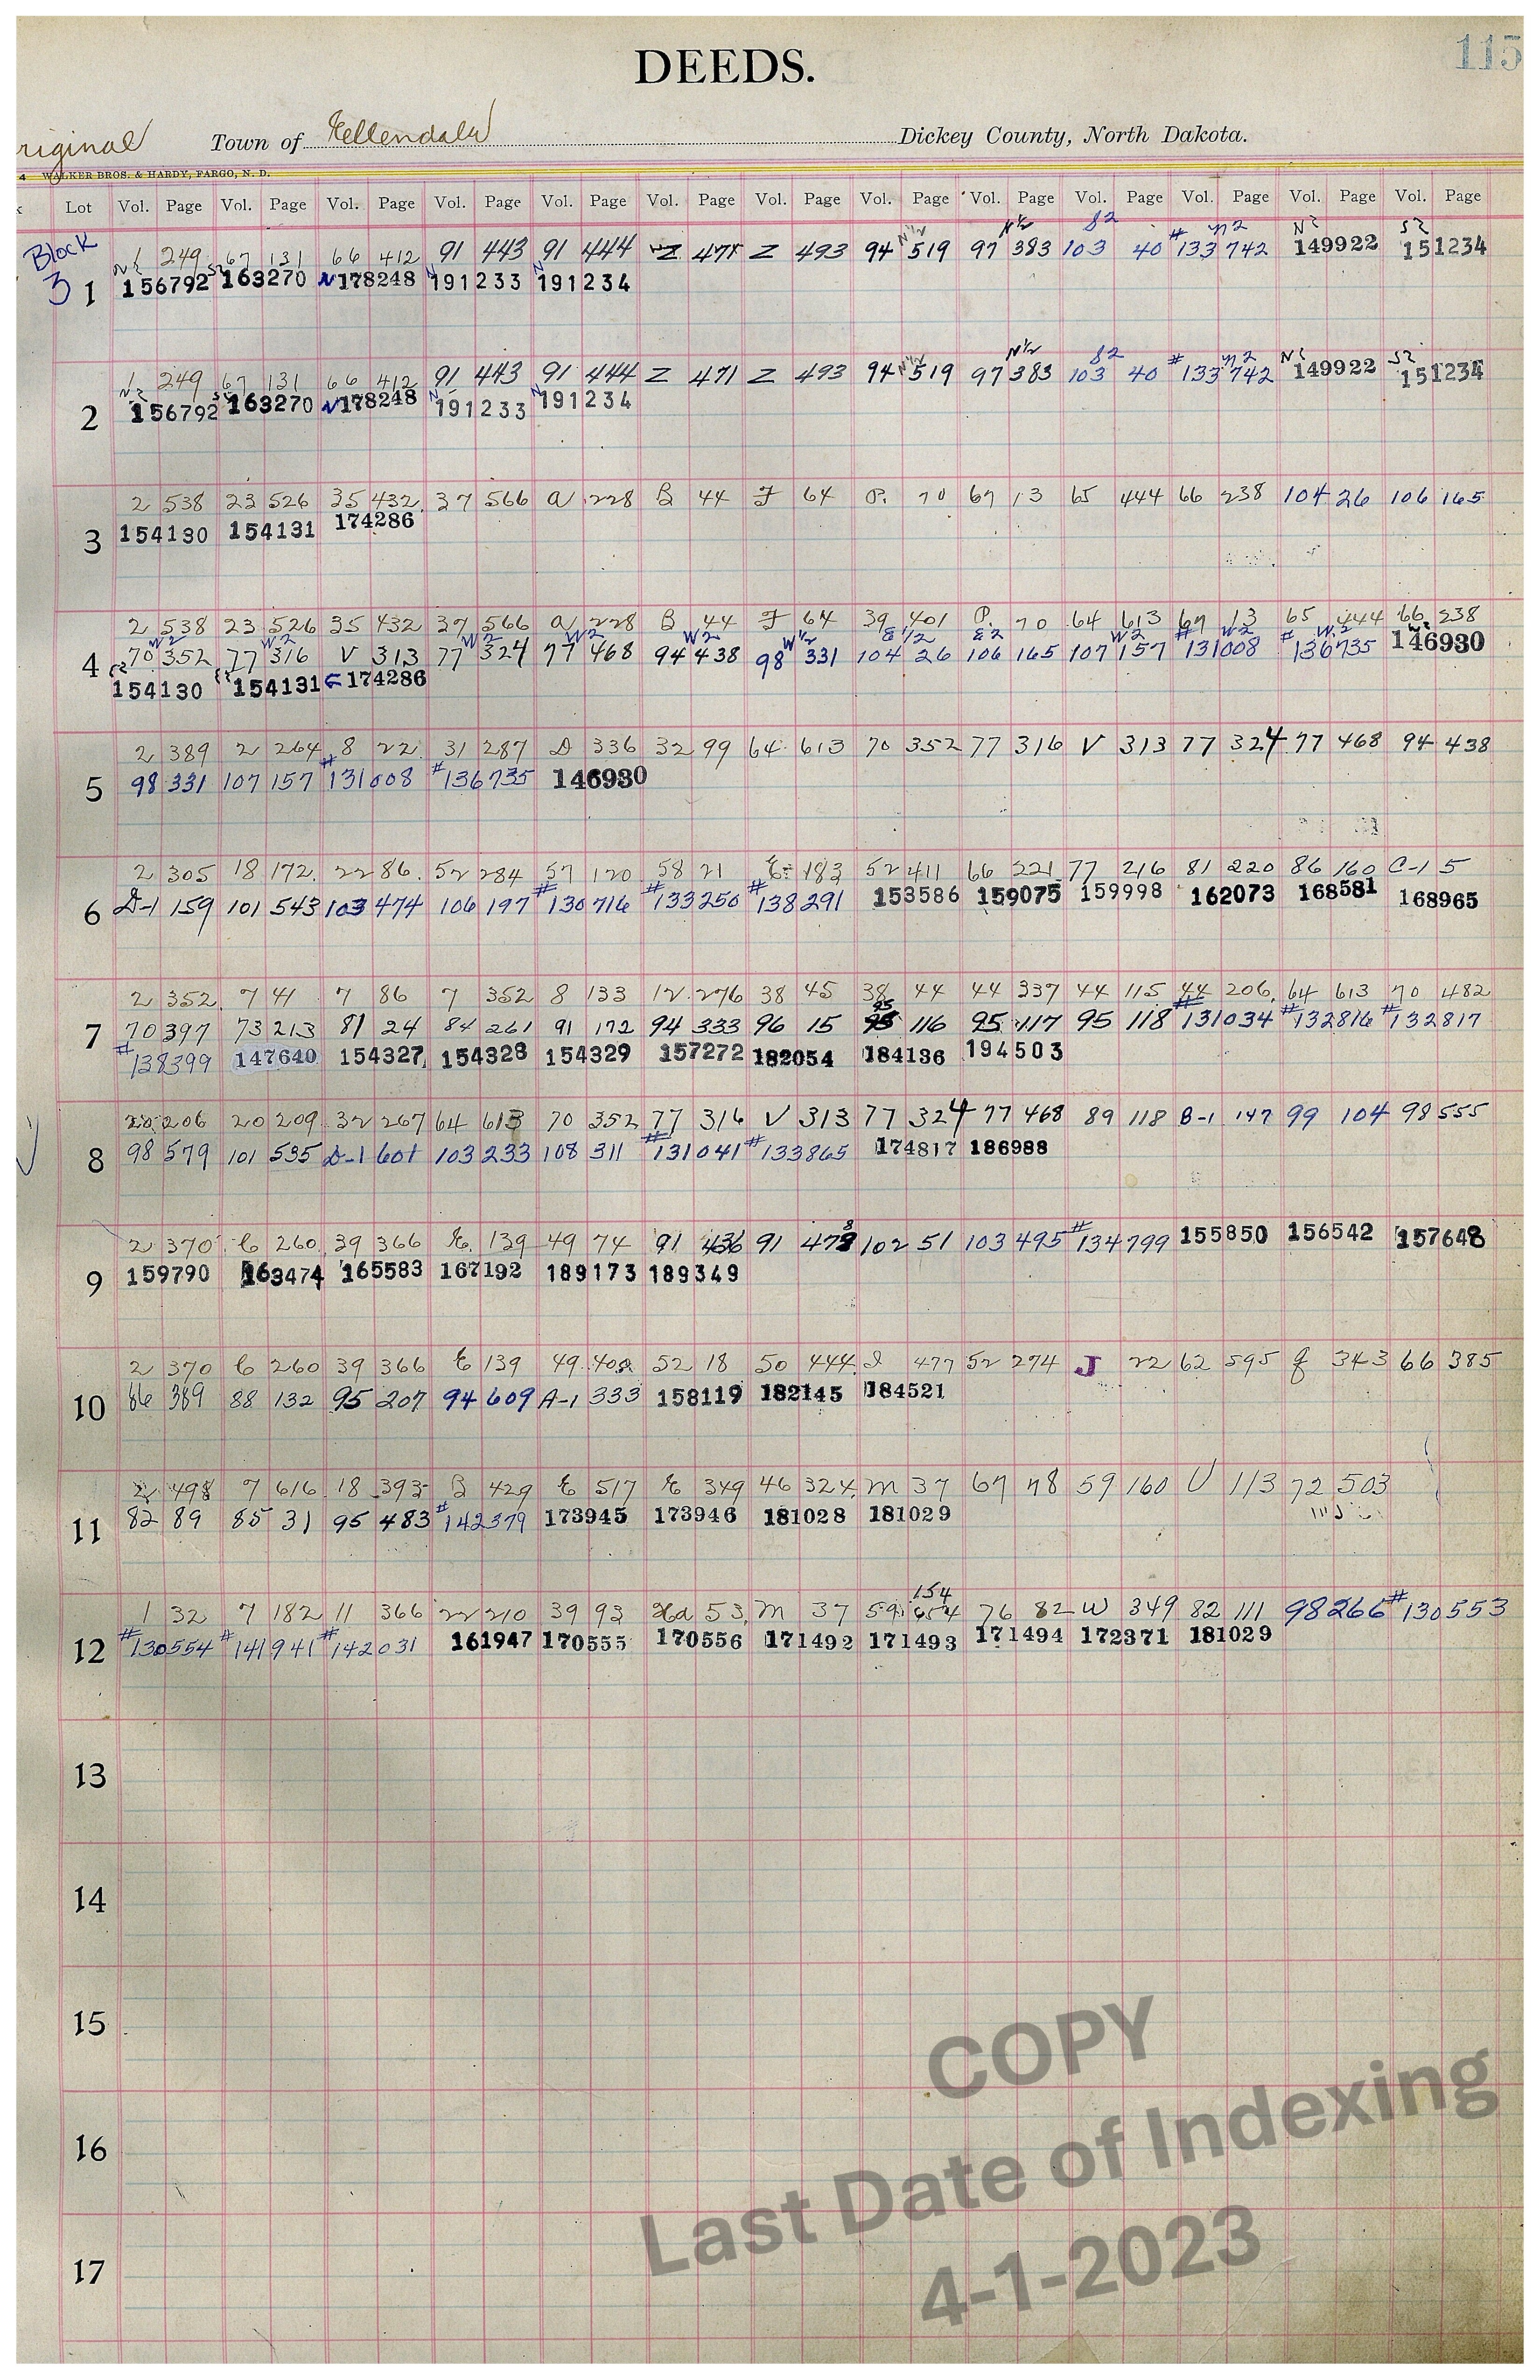 115
DEEDS.
riginal Town of Ellendale Dickey County, North Dakota.
4 WALKER BROS. & HARDY, FARGO, N. D.
k Lot Vol. Page Vol. Page Vol. Page Vol. Page Vol. Page Vol. Page Vol. Page Vol. Page Vol. Page Vol. Page Vol. Page Vol. Page Vol. Page
N½ N½ S2 # N2 N2 S2
Block 1 249 67 131 66 412 91 443 91 444 Z 471 Z 493 94 519 97 383 103 40 133 742 149922 151234
3 1 N2 156792 S2 163270 N 178248 N 191233 N 191234
N½ N½ S2 # N2 N2 S2
1 249 67 131 66 412 91 443 91 444 Z 471 Z 493 94 519 97 383 103 40 133 742 149922 151234
2 N2 156792 S2 163270 N 178248 N 191233 N 191234
2 538 23 526 35 432 37 566 A 228 B 44 F 64 P. 70 67 13 65 444 66 238 104 26 106 165
3 154130 154131 174286
2 538 23 526 35 432 37 566 A 228 B 44 F 64 39 401 P. 70 64 613 67 13 65 444 66 238
W2 W2 W2 W2 W2 W½ E½ E2 W2 # W2 # W2 W2
4 70 352 77 316 V 313 77 324 77 468 94 438 98 331 104 26 106 165 107 157 131008 136735 146930
154130 154131 174286
2 389 2 264 8 22 31 287 D 336 32 99 64 613 70 352 77 316 V 313 77 324 77 468 94 438
5 98 331 107 157 #131008 #136735 146930
2 305 18 172 22 86 52 284 57 120 58 21 E 183 52 411 66 221 77 216 81 220 86 160 C-1 5
6 D-1 159 101 543 103 474 106 197 #130716 #133250 #138291 153586 159075 159998 162073 168581 168965
2 352 7 41 7 86 7 352 8 133 12 276 38 45 38 44 44 337 44 115 44 206 64 613 70 482
7 70 397 73 213 81 24 84 261 91 172 94 333 96 15 95 116 95 117 95 118 #131034 #132816 #132817
#138399 147640 154327 154328 154329 157272 182054 184136 194503
20 206 20 209 32 267 64 613 70 352 77 316 V 313 77 324 77 468 89 118 B-1 147 99 104 98 555
8 98 579 101 535 D-1 601 103 233 108 311 #131041 #133865 174817 186988
2 370 C 260 39 366 E 139 49 74 91 436 91 478 102 51 103 495 #134799 155850 156542 157648
9 159790 163474 165583 167192 189173 189349
2 370 C 260 39 366 E 139 49 52 18 50 444 I 477 52 274 J 22 62 595 g 343 66 385
10 86 389 88 132 95 207 94 609 A-1 333 158119 182145 184521
2 498 7 616 18 393 B 429 E 517 E 349 46 324 M 37 67 78 59 160 U 113 72 503
11 82 89 85 31 95 483 #142379 173945 173946 181028 181029
154
1 32 7 182 11 366 22 210 39 93 53 M 37 59 76 82 W 349 82 111 98 266 #130553
12 #130554 #141941 #142031 161947 170555 170556 171492 171493 171494 172371 181029
13
14
15
16
17
COPY
Last Date of Indexing
4-1-2023